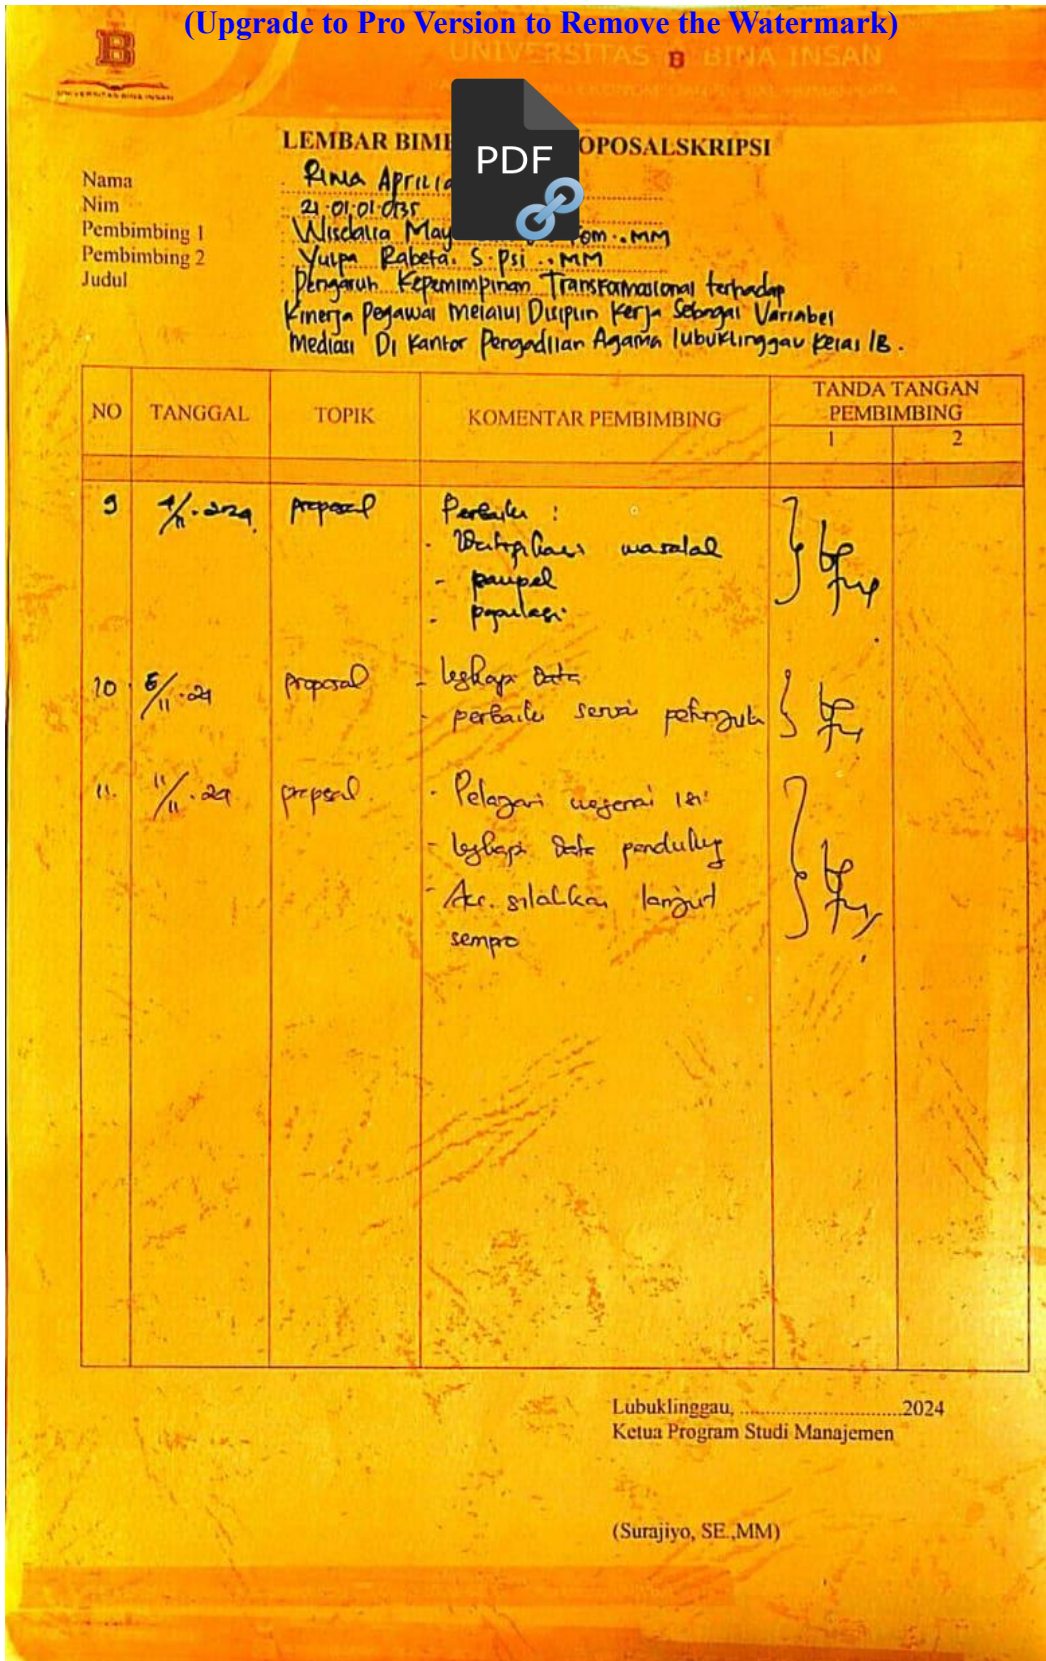 (Upgrade to Pro Version to Remove the Watermark)
UNIVERSITAS B BINA INSAN
UNIVERSITAS BINA INSAN
PDF
LEMBAR BIMB OPOSALSKRIPSI
Nama : Rina Aprilia
Nim : 21.01.01.0135
Pembimbing 1 : Wisdalia May .MM
Pembimbing 2 : Yulpa Rabeta. S.Psi ..MM
Judul : Pengaruh Kepemimpinan Transformasional terhadap
Kinerja Pegawai Melalui Disiplin Kerja Sebagai Variabel
Mediasi Di Kantor Pengadilan Agama lubuklinggau Kelas 1B.
NO TANGGAL TOPIK KOMENTAR PEMBIMBING TANDA TANGAN PEMBIMBING
1 2
9 proposal Perbaiki :
- masalah
-
- populasi
10 5/11.24 proposal - lengkapi data
- perbaiki sesuai petunjuk
11. 11/11.24 proposal. - Pelajari mengenai isi
- lengkapi data pendukung
- Acc. silahkan lanjut
sempro
Lubuklinggau, ........................................2024
Ketua Program Studi Manajemen
(Surajiyo, SE.,MM)